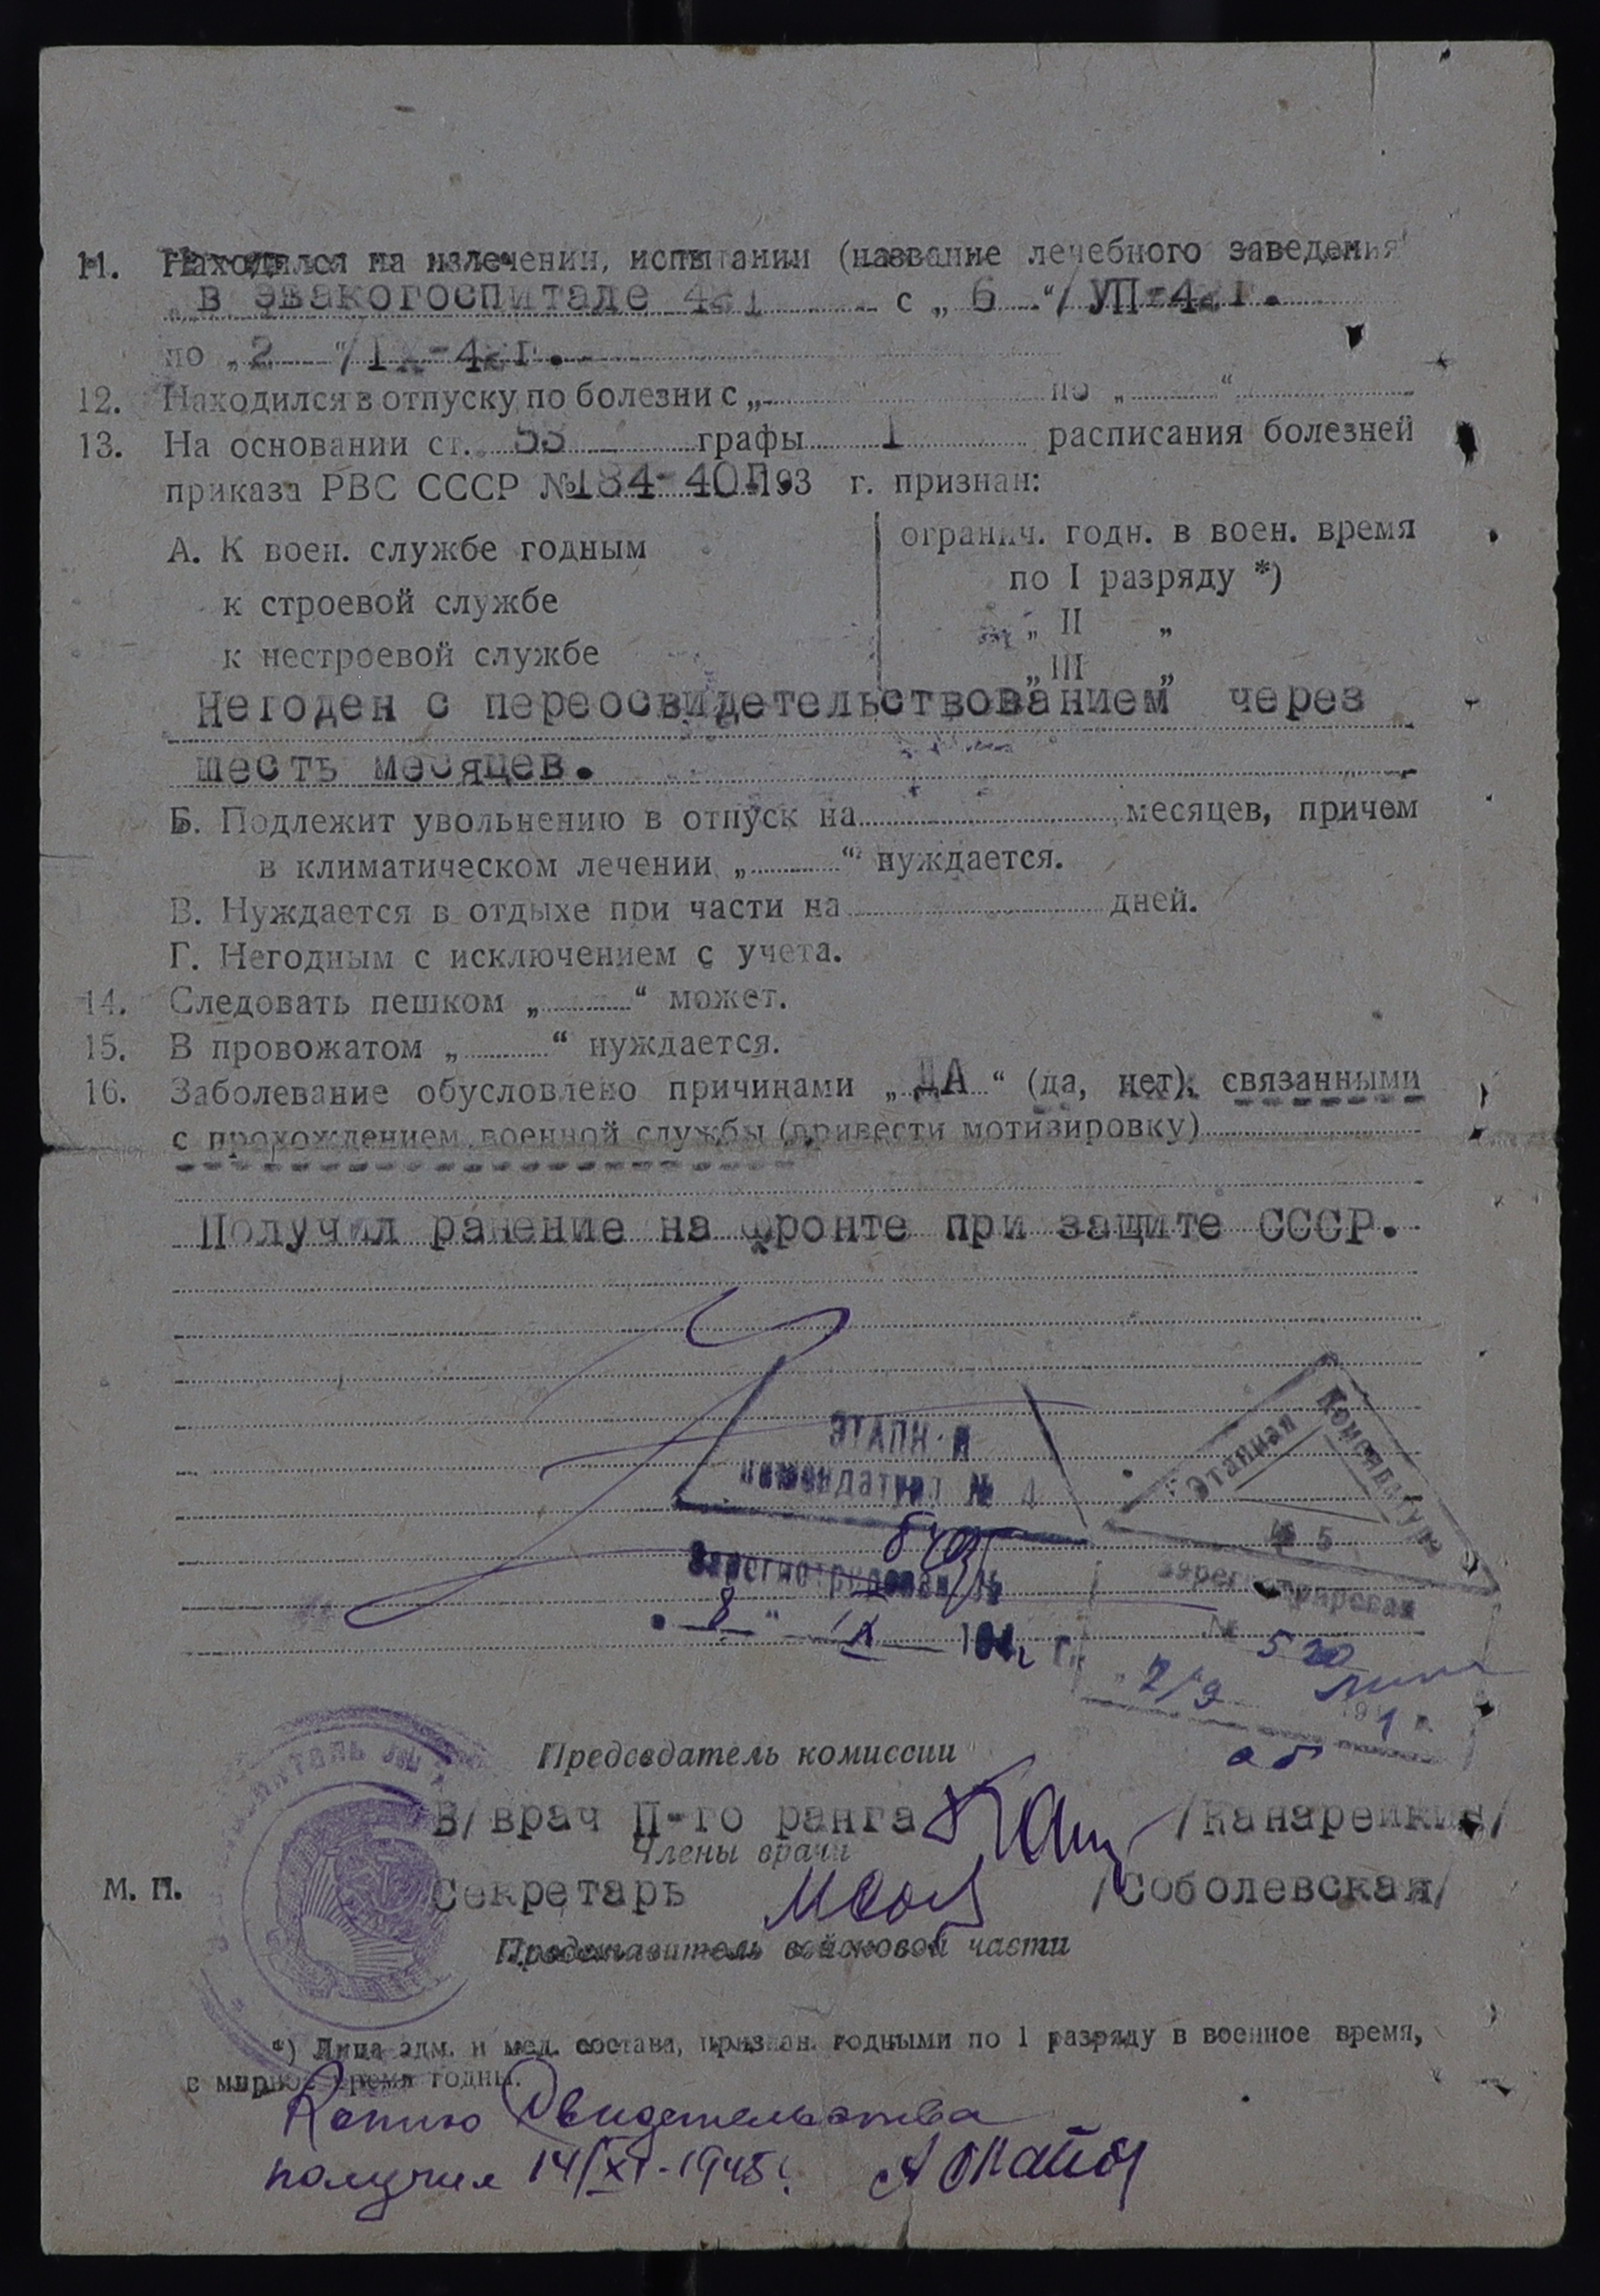 11. Находился на излечении, испытании (название лечебного заведения
„ в эвакогоспитале 421 с „ 6 “/УП-42г.
по „ 2 “/IX-42г.
12. Находился в отпуску по болезни с „ по „ “
13. На основании ст. 53 графы 1 расписания болезней
приказа РВС СССР №184-40г.193 г. признан:
А. К воен. службе годным
к строевой службе
к нестроевой службе
огранич. годн. в воен. время
по I разряду *)
„ II „
„ III „
Негоден с переосвидетельствованием через
шесть месяцев.
Б. Подлежит увольнению в отпуск на месяцев, причем
в климатическом лечении „ “ нуждается.
В. Нуждается в отдыхе при части на дней.
Г. Негодным с исключением с учета.
14. Следовать пешком „ “ может.
15. В провожатом „ “ нуждается.
16. Заболевание обусловлено причинами „ ДА “ (да, нет), связанными
с прохождением военной службы (привести мотивировку)
Получил ранение на фронте при защите СССР.
Этапная
Комендатура
№ 5
№ 520
2/9
„ 8 “ IX 1942 г.
Председатель комиссии
В/врач П-го ранга /Канарейкин/
Члены врачи
Секретарь /Соболевская/
М. П.
Представитель войсковой части
*) Лица адм. и мед. состава, признан. годными по 1 разряду в военное время,
в мирное время годны.
Копию Свидетельства
получил 14/XI-1945г.